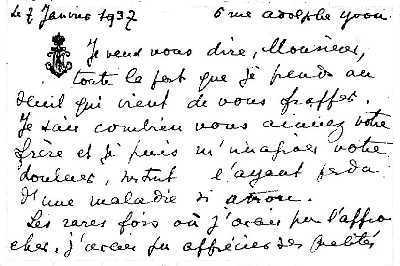 Le 7 Janvier 1937 6 rue Adolphe Yvon
Je veux vous dire, Monsieur,
toute la part que je prends au
deuil qui vient de vous frapper.
Je sais combien vous aimiez votre
frère et je puis m'imaginer votre
douleur, surtout l'ayant perdu
d'une maladie si atroce.
Les rares fois où j'avais pu l'appro
cher, j'avais pu apprécier ses qualités